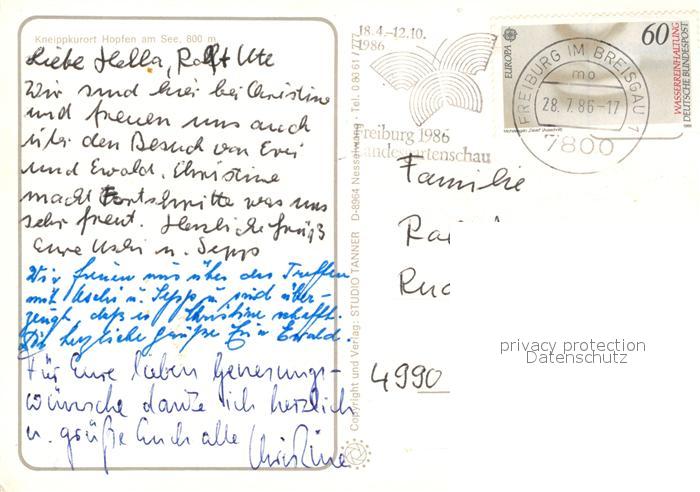 Kneippkurort Hopfen am See, 800 m
Liebe Hella, Rolf, Ute
Wir sind hier bei Christine
und freuen uns auch
über den Besuch von Evi
und Ewald. Christine
macht Fortschritte was uns
sehr freut. Herzliche Grüße
Eure Uschi u. Sepp
Wir freuen uns über das Treffen
mit Uschi u. Sepp u. sind über-
zeugt, daß es Christine schafft.
Die herzliche Grüße Evi Ewald.
Für Eure lieben Genesungs-
wünsche danke ich herzlich
u. grüße Euch alle Christine
Copyright und Verlag: STUDIO TANNER D-8964 Nesselwang · Tel. 0 83 61 / 777
18.4.-12.10.
1986
Freiburg 1986
Landesgartenschau
FREIBURG IM BREISGAU 1
mo
28.7.86-17
7800
EUROPA
60
WASSERREINHALTUNG
DEUTSCHE BUNDESPOST
Familie
Rai
Ruc
4990
privacy protection
Datenschutz